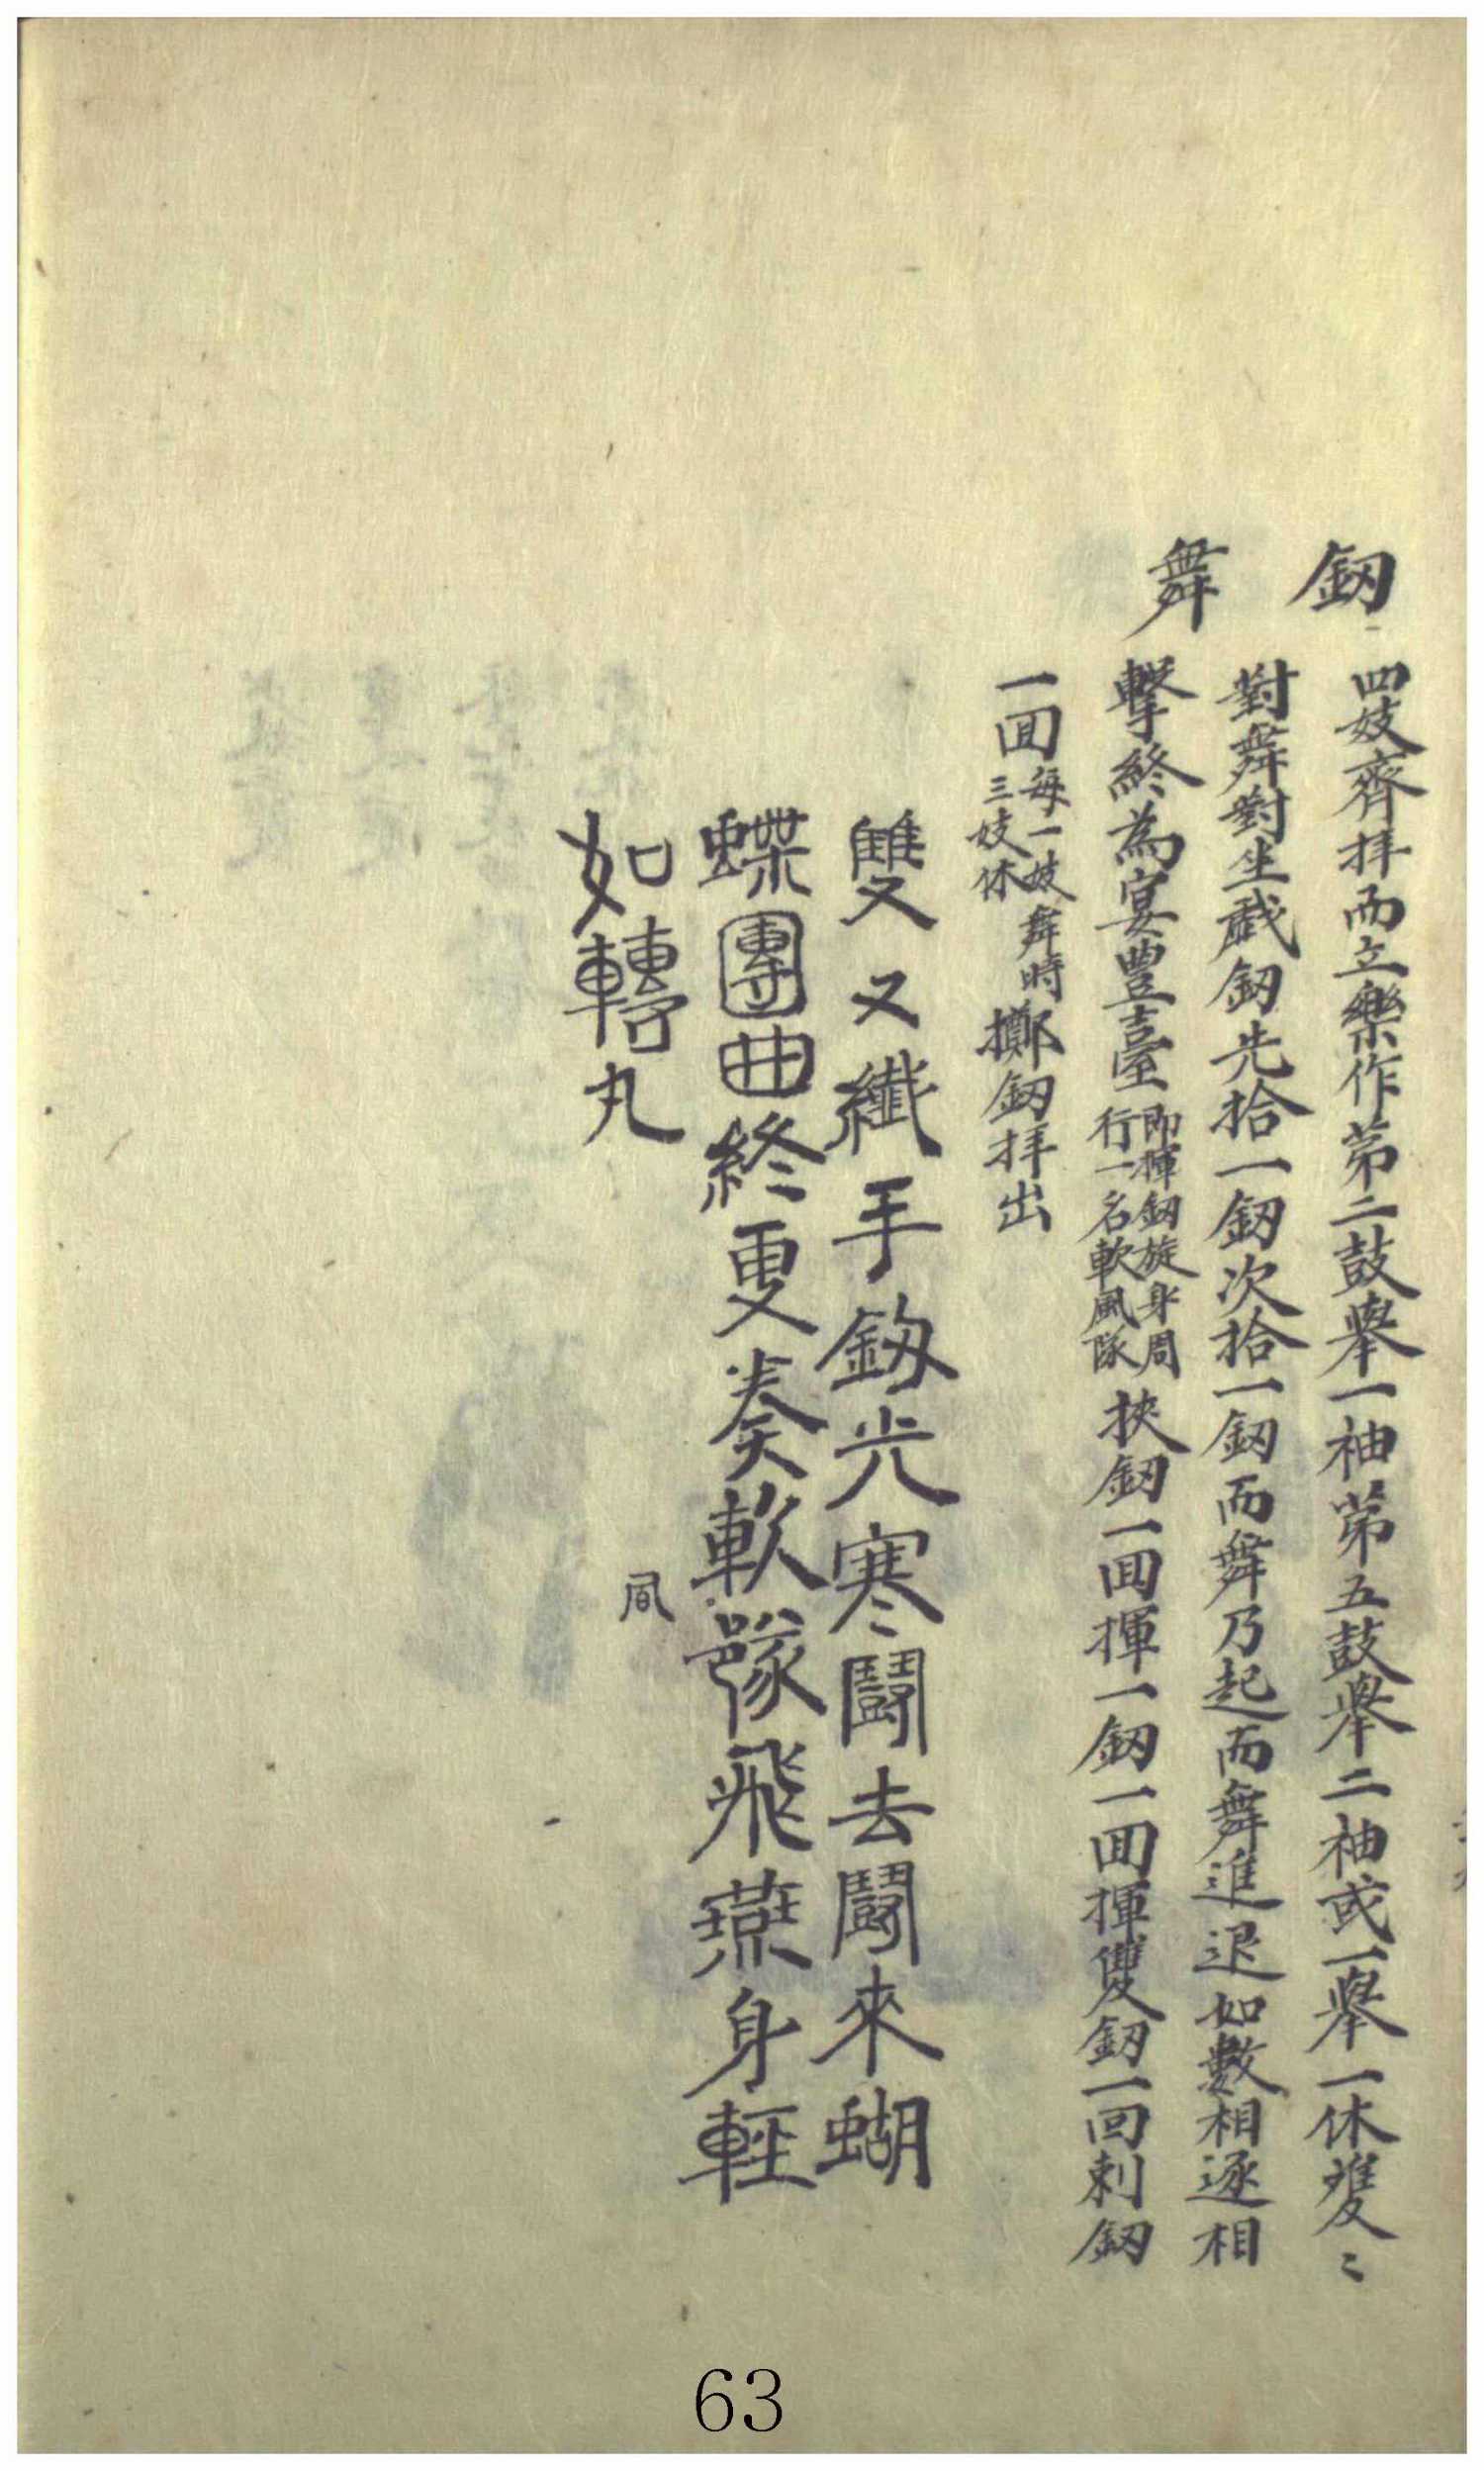 釼舞
四妓齊拜而立樂作第二鼓擧一袖第五鼓擧二袖或一擧一休雙〻
對舞對坐戱釼先拾一釼次拾一釼而舞乃起而舞進退如數相逐相
擊終為宴豊臺
即揮釼旋身周
行一名軟風隊
挾釼一囬揮一釼一囬揮雙釼一回刺釼
一囬
每一妓舞時
三妓休
擲釼拜出
雙又纖手釼光寒鬪去鬪來蝴
蝶團曲終更奏軟隊飛燕身輕
風
如轉丸
63